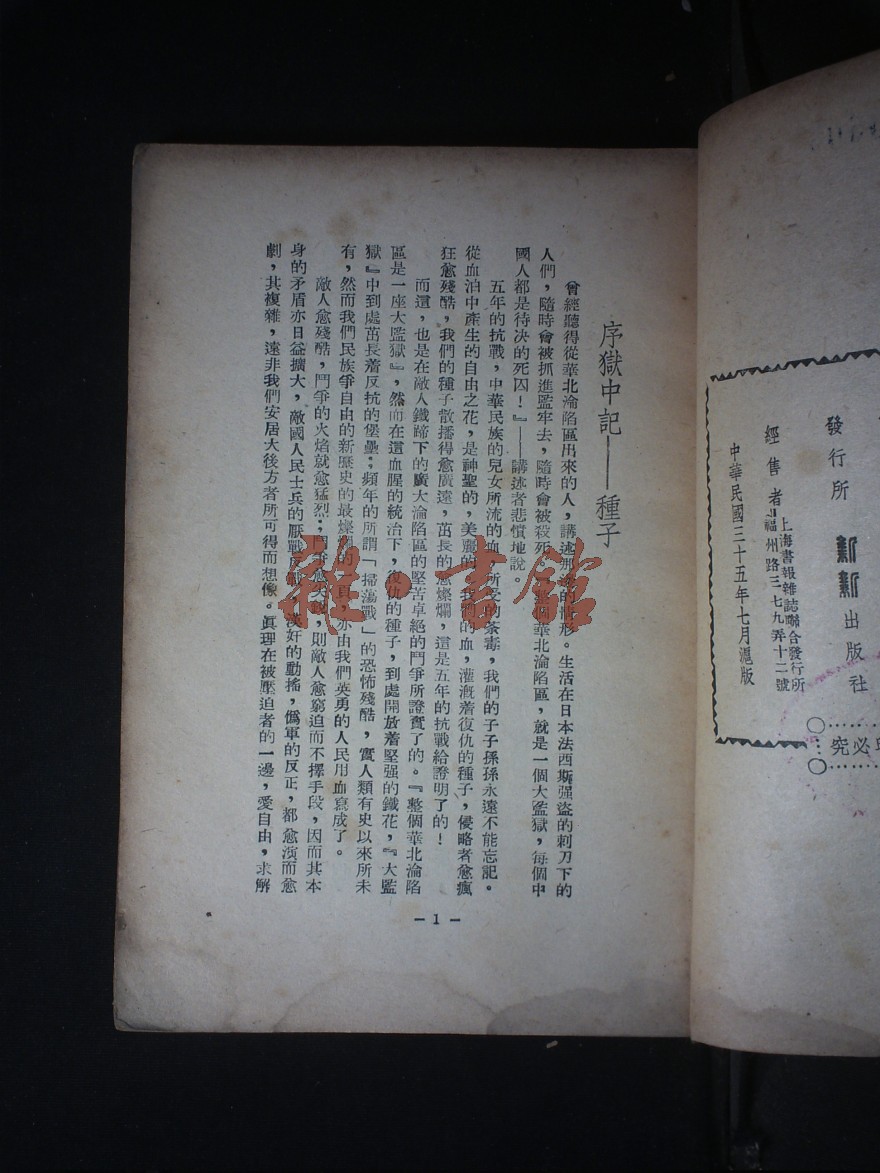 序獄中記——種子
曾經聽得從華北淪陷區出來的人，講述那邊的情形。生活在日本法西斯强盜的刺刀下的
人們，隨時會被抓進監牢去，隨時會被殺死。整個華北淪陷區，就是一個大監獄，每個中
國人都是待决的死囚！』——講述者悲憤地說。
五年的抗戰，中華民族的兒女所流的血，所受的荼毒，我們的子子孫孫永遠不能忘記。
從血泊中產生的自由之花，是神聖的，美麗的，我們的血，灌溉着復仇的種子，侵略者愈瘋
狂愈殘酷，我們的種子散播得愈廣遠，茁長的愈燦爛，這是五年的抗戰給證明了的！
而這，也是在敵人鐵蹄下的廣大淪陷區的堅苦卓絕的鬥爭所證實了的。『整個華北淪陷
區是一座大監獄』，然而在這血腥的統治下，復仇的種子，到處開放着堅强的鐵花，『大監
獄』中到處茁長着反抗的堡壘；頻年的所謂「掃蕩戰」的恐怖殘酷，實人類有史以來所未
有，然而我們民族爭自由的新歷史的最燦爛的一頁，亦由我們英勇的人民用血寫成了。
敵人愈殘酷，鬥爭的火焰就愈猛烈；鬥爭愈尖銳，則敵人愈窮迫而不擇手段，因而其本
身的矛盾亦日益擴大，敵國人民士兵的厭戰反戰，漢奸的動搖，僞軍的反正，都愈演而愈
劇，其複雜，遠非我們安居大後方者所可得而想像。眞理在被壓迫者的一邊，愛自由，求解
— 1 —
發行所 新新出版社
經售者 上海書報雜誌聯合發行所
福州路三七九弄十二號
中華民國三十五年七月滬版
必究
雜·書館